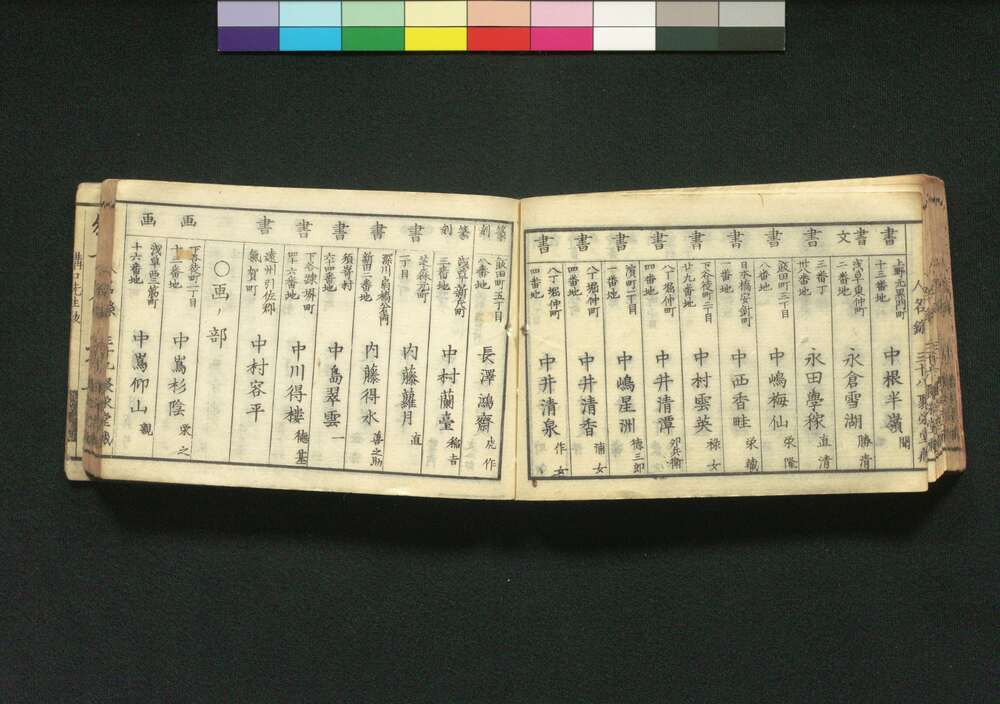 書
上野元黒門町
十三番地
中根半嶺
聞
書
文
浅草東仲町
二番地
永倉雪湖
勝清
書
三番丁
廿八番地
永田學稼
直清
書
飯田町二丁目
八番地
中嶋梅仙
栄隆
書
日本橋安針町
一番地
中西香畦
栄蔵
書
下谷徒町三丁目
廿九番地
中村雲英
禄女
書
八丁堀仲町
四番地
中井清潭
卯兵衛
書
濱町二丁目
一番地
中嶋星洲
徳三郎
書
八丁堀仲町
四番地
中井清香
蒲女
書
八丁堀仲町
四番地
中井清泉
作女
篆
刻
飯田町五丁目
八番地
長澤鴻齋
虎作
篆
刻
浅草新兵町
三番地
中村蘭臺
稲吉
書
芝森元町
二丁目
内藤蘿月
直
書
深川扇橋
新田二番地
内藤得水
善之助
書
須嵜村
六十四番地
中島翠雲
一
書
下谷練塀町
四十六番地
中川得楼
徳基
書
遠州引佐郡
氣賀町
中村容平
○画ノ部
画
下谷徒町二丁目
十一番地
中嶌杉陰
栄之
画
浅草西三筋町
十六番地
中嶌仰山
観